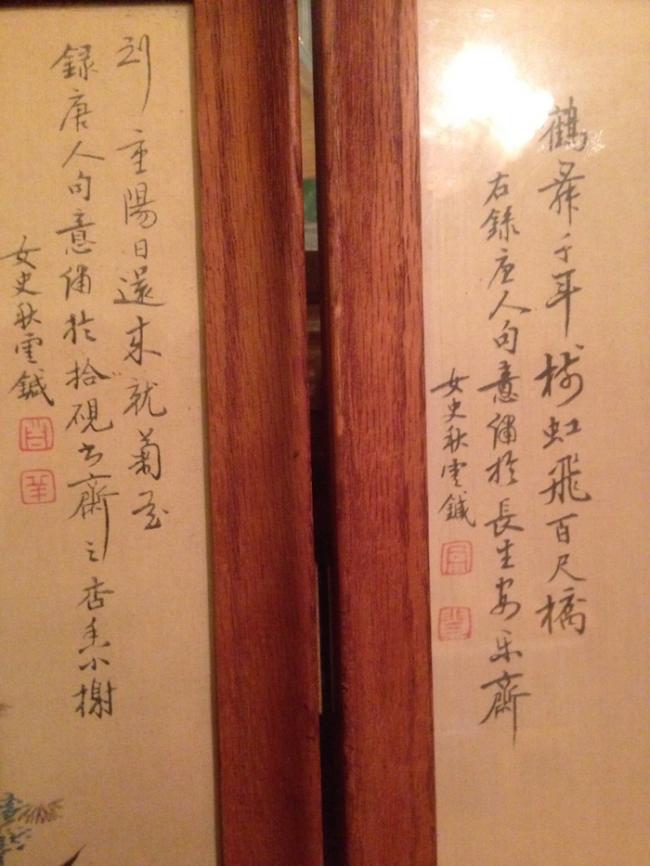 鶴舞千年樹虹飛百尺橋
右錄唐人句意繡於長生安樂齋
女史秋雲鍼
到重陽日還來就菊花
錄唐人句意繡於拾硯書齋之杏香小榭
女史秋雲鍼